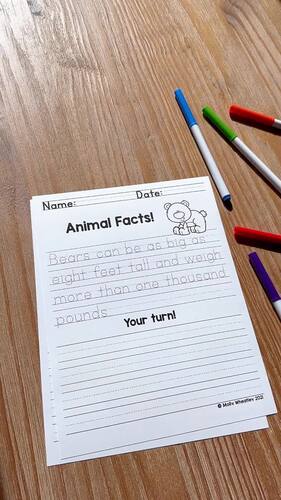 Name: Date:
Animal Facts!
Bears can be as big as
eight feet tall and weigh
more than one thousand
pounds
Your turn!
© Molly Wheatley 2021